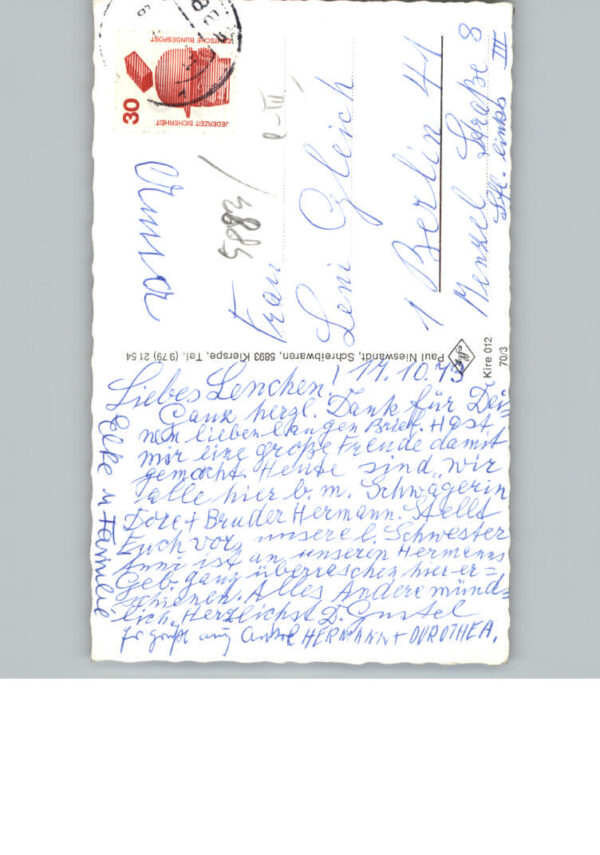 Liebes Lenchen! 14.10.73
Ganz herzl. Dank für Dei=
nen lieben langen Brief. Hast
mir eine große Freude damit
gemacht. Heute sind wir
alle hier b. m. Schwägerin
Dore + Bruder Hermann. Stellt
Euch vor, unsere l. Schwester
Anni ist an unseren Hermanns
Geb. ganz überraschen hier er=
schienen. Alles Andere münd=
lich. Herzlichst D. Gustel
Es grüßt HERMANN + DOROTHEA.
Elke u Familie
Anna
Paul Nieswandt, Schreibwaren, 5893 Kierspe, Tel. (9 79) 21 54
Kire 012
70/3
30
DEUTSCHE BUNDESPOST
JEDERZEIT SICHERHEIT
Frau
Leni Gleich
1 Berlin 41
Menzel Straße 8
links III